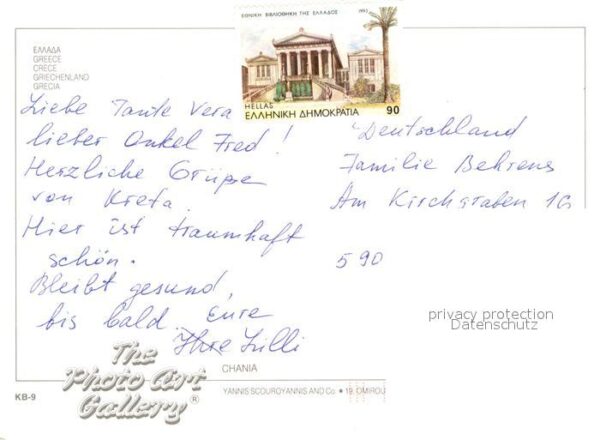 ΕΘΝΙΚΗ ΒΙΒΛΙΟΘΗΚΗ ΤΗΣ ΕΛΛΑΔΟΣ 1993
HELLAS
ΕΛΛΗΝΙΚΗ ΔΗΜΟΚΡΑΤΙΑ 90
ΕΛΛΑΔΑ
GREECE
GRECE
GRIECHENLAND
GRECIA
Liebe Tante Vera
lieber Onkel Fred!
Herzliche Grüße
von Kreta.
Hier ist traumhaft
schön.
Bleibt gesund,
bis bald. Eure
Ihre Lilli
Deutschland
Familie Behrens
Am Kirchgraben 1G
590
privacy protection
Datenschutz
The
Photo Art
Gallery®
CHANIA
KB-9
YANNIS SCOUROYANNIS AND Co. • 19, OMIROU